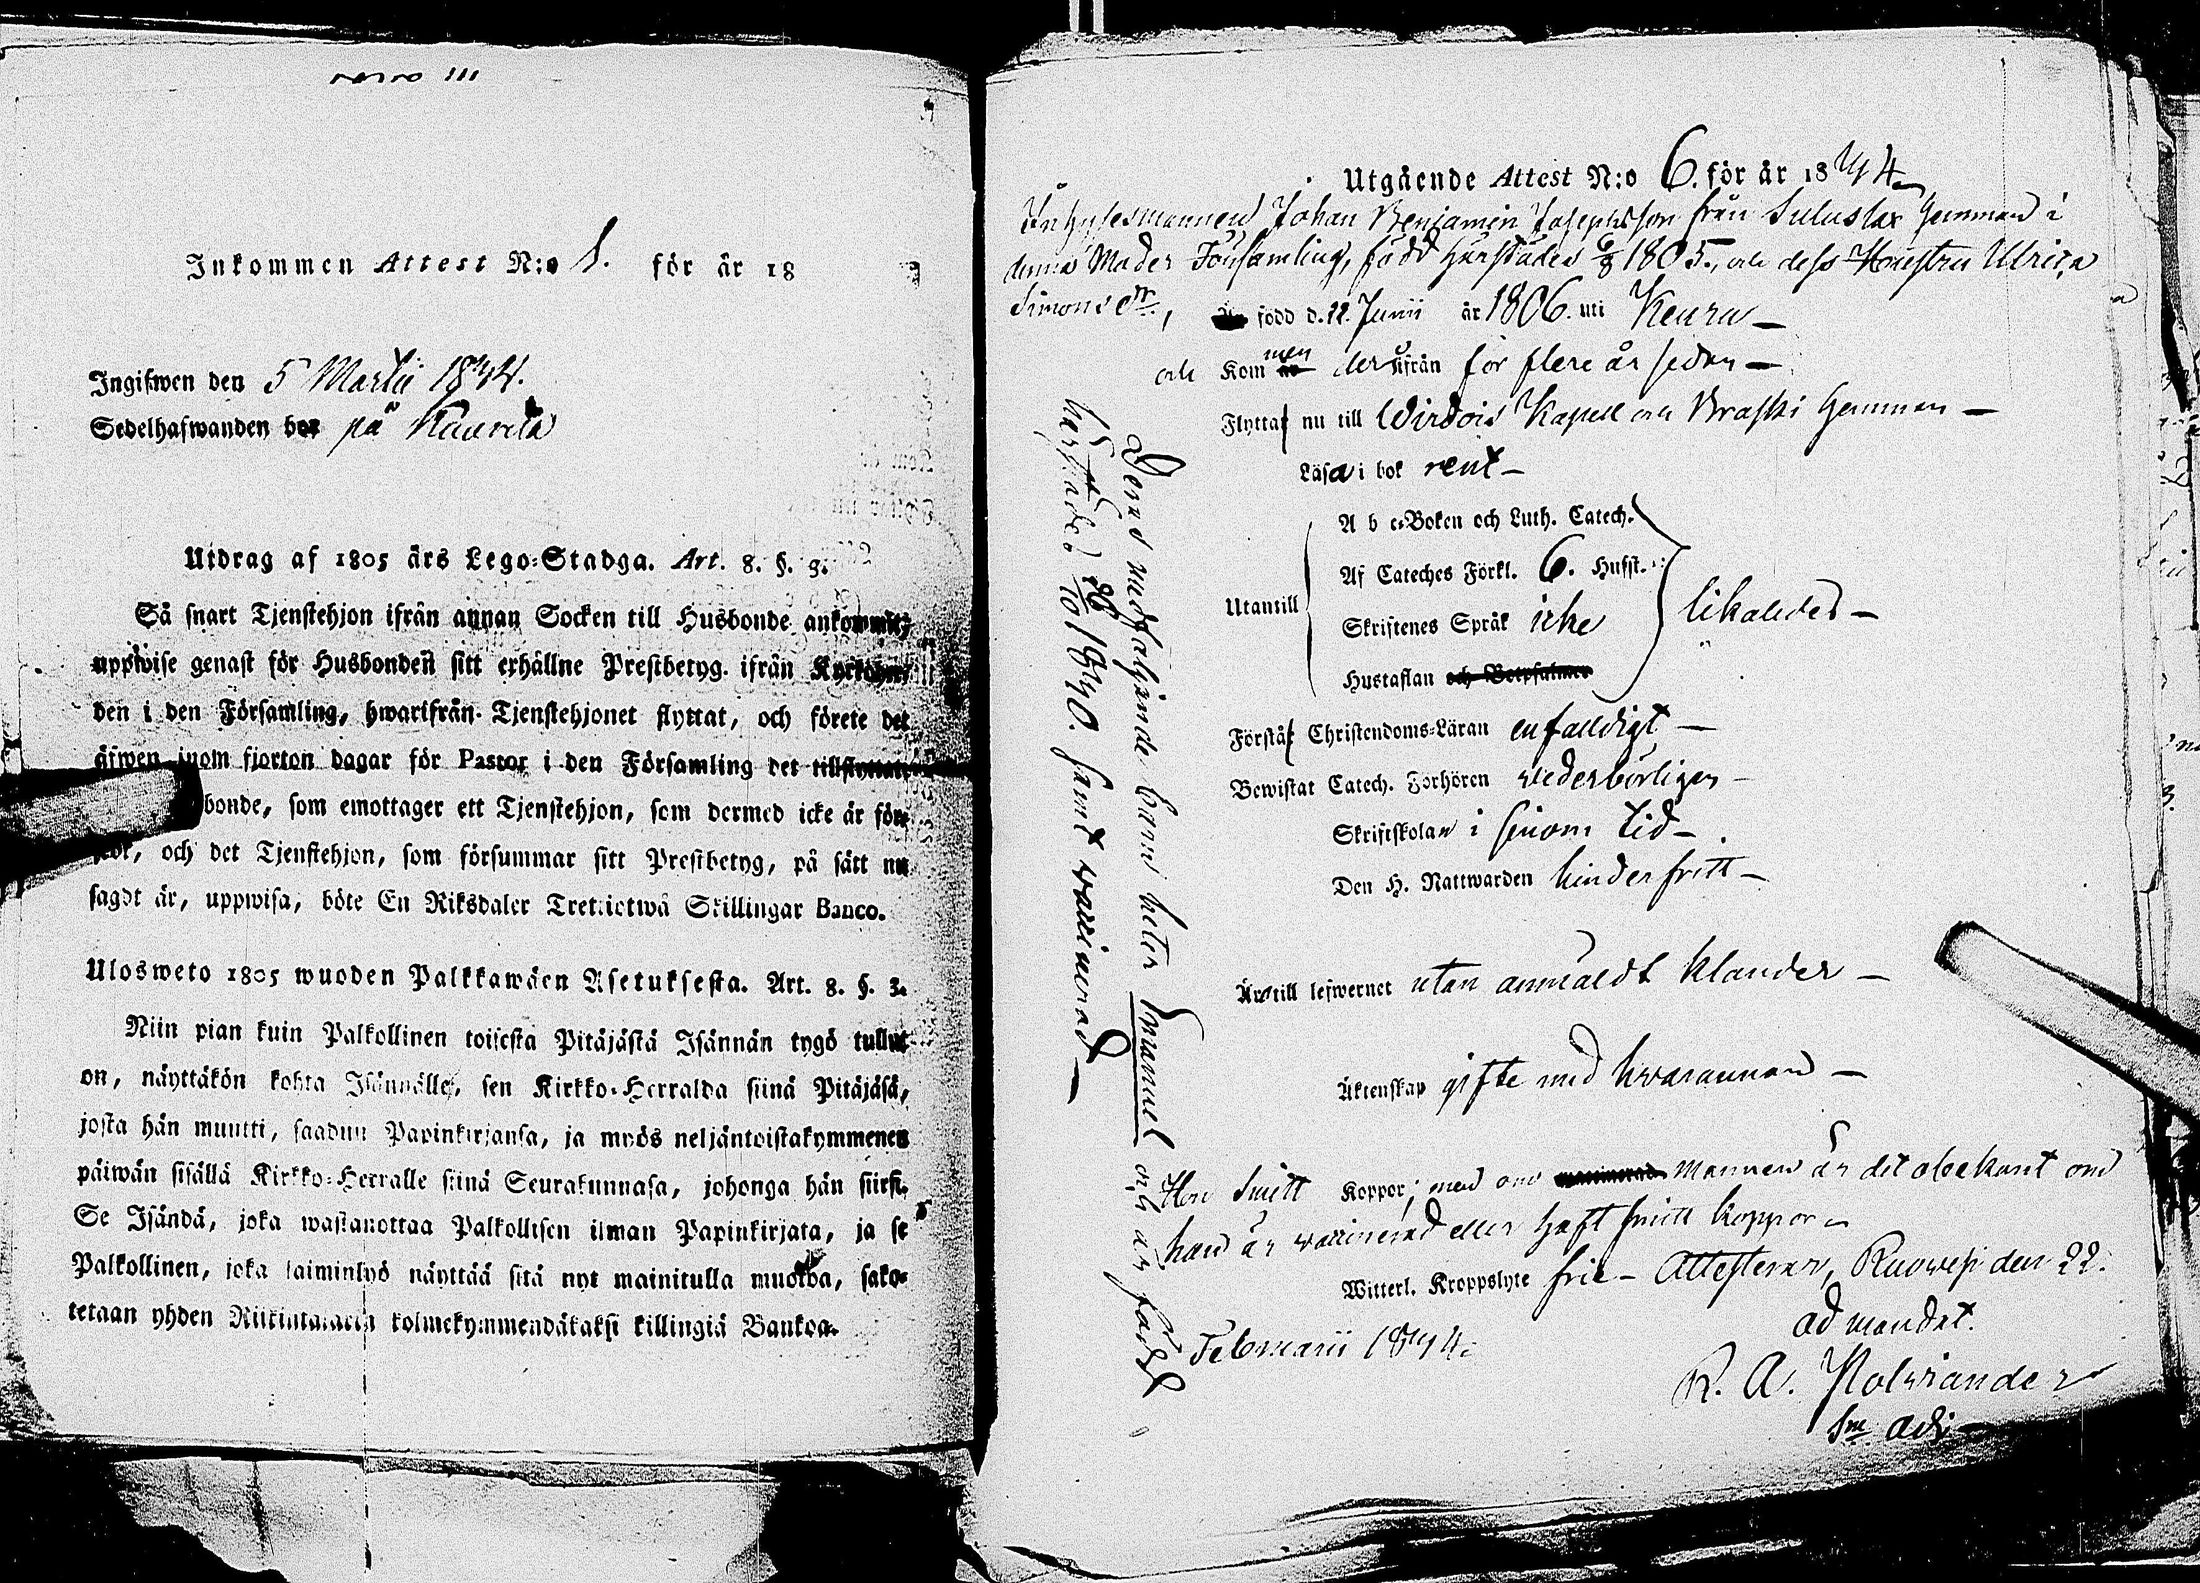 Inkommen Attest N:o 1. för år 18
Ingifwen den 5 Martii 1844.
Sedelhafwanden bor på
Utdrag af 1805 års Lego-Stadga. Art. 8. §. 3.
Så snart Tjenstehjon ifrån annan Socken till Husbonde ankommit,
uppwise genast för Husbonden sitt erhållne Prestbetyg ifrån Kyrkoher-
den i den Församling, hwarifrån Tjenstehjonet flyttat, och förete det
äfwen inom fjorton dagar för Pastor i den Församling det tillflyttat
bonde, som emottager ett Tjenstehjon, som dermed icke är för-
sedt, och det Tjenstehjon, som försummar sitt Prestbetyg, på sätt nu
sagdt är, uppwisa, böte En Riksdaler Trettiotwå Skillingar Banco.
Ulosweto 1805 wuoden Palkkawäen Asetuksesta. Art. 8. §. 3.
Niin pian kuin Palkollinen toisesta Pitäjästä Isännän tygö tullut
on, näyttäkön kohta Isännälle, sen Kirkko-Herralda siinä Pitäjäsä,
josta hän muutti, saadun Papinkirjansa, ja myös neljäntoistakymmenen
päiwän sisällä Kirkko-Herralle siinä Seurakunnasa, johonga hän siirsi.
Se Isändä, joka wastanottaa Palkollisen ilman Papinkirjata, ja se
Palkollinen, joka laiminlyö näyttää sitä nyt mainitulla muotoa, sako-
tetaan yhden Riikintalarin kolmekymmendäkaksi killingiä Bankoa.
Utgående Attest N:o 6. för år 1844
Inhysesmannen Johan Benjamin Josephsson från hemman i
denna Moder Församling, född härstädes 6/8 1805., och dess Hustru Ulrica
Simonsdr., född d. 22. Junii år 1806. uti Keuru –
och Kommen derifrån för flere år sedan –
Flytta nu till Wirdois Kapell och Braski hemman –
Läsa i bok rent –
Utantill
A b c-Boken och Luth. Catech.
Af Cateches Förkl. 6. Hufst.
Skriftenes Språk icke
Hustaflan och Botpsalmer
likaledes –
Förstå Christendoms-Läran enfaldigt –
Bewistat Catech. Förhören wederbörligen –
Skriftskolan i sinom tid –
Den H. Nattwarden hinderfritt –
Äro till lefwernet utan anmäldt klander –
Äktenskap gifte med hwarannan –
Hon haft Koppor; men om mannen är det obekant om
han är vaccinerad eller haft koppor –
Witterl. Kroppslyte frie – Attesterar, Ruowesi den 22.
Februarii 1844.
ad mandat.
R. A. Polviander
Sm. adj.
Deras medföljande barn heter Emanuel och är född
härstädes 26/10 1840. samt vaccinerad –